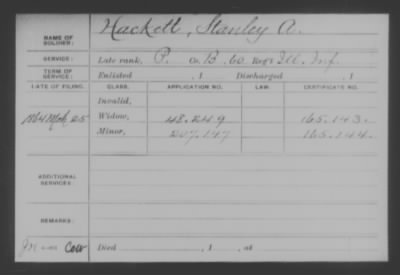 NAME OF SOLDIER: Hackett, Stanley A.
SERVICE: Late rank, P. Co. B, 60 Reg't Ill. Inf.
TERM OF SERVICE: Enlisted , 1 Discharged , 1
DATE OF FILING. CLASS. APPLICATION NO. LAW. CERTIFICATE NO.
Invalid,
1864 Mch 25 Widow, 48.249 165.143.
Minor, 207.147 165.144.
ADDITIONAL SERVICES:
REMARKS:
Died , 1 , at